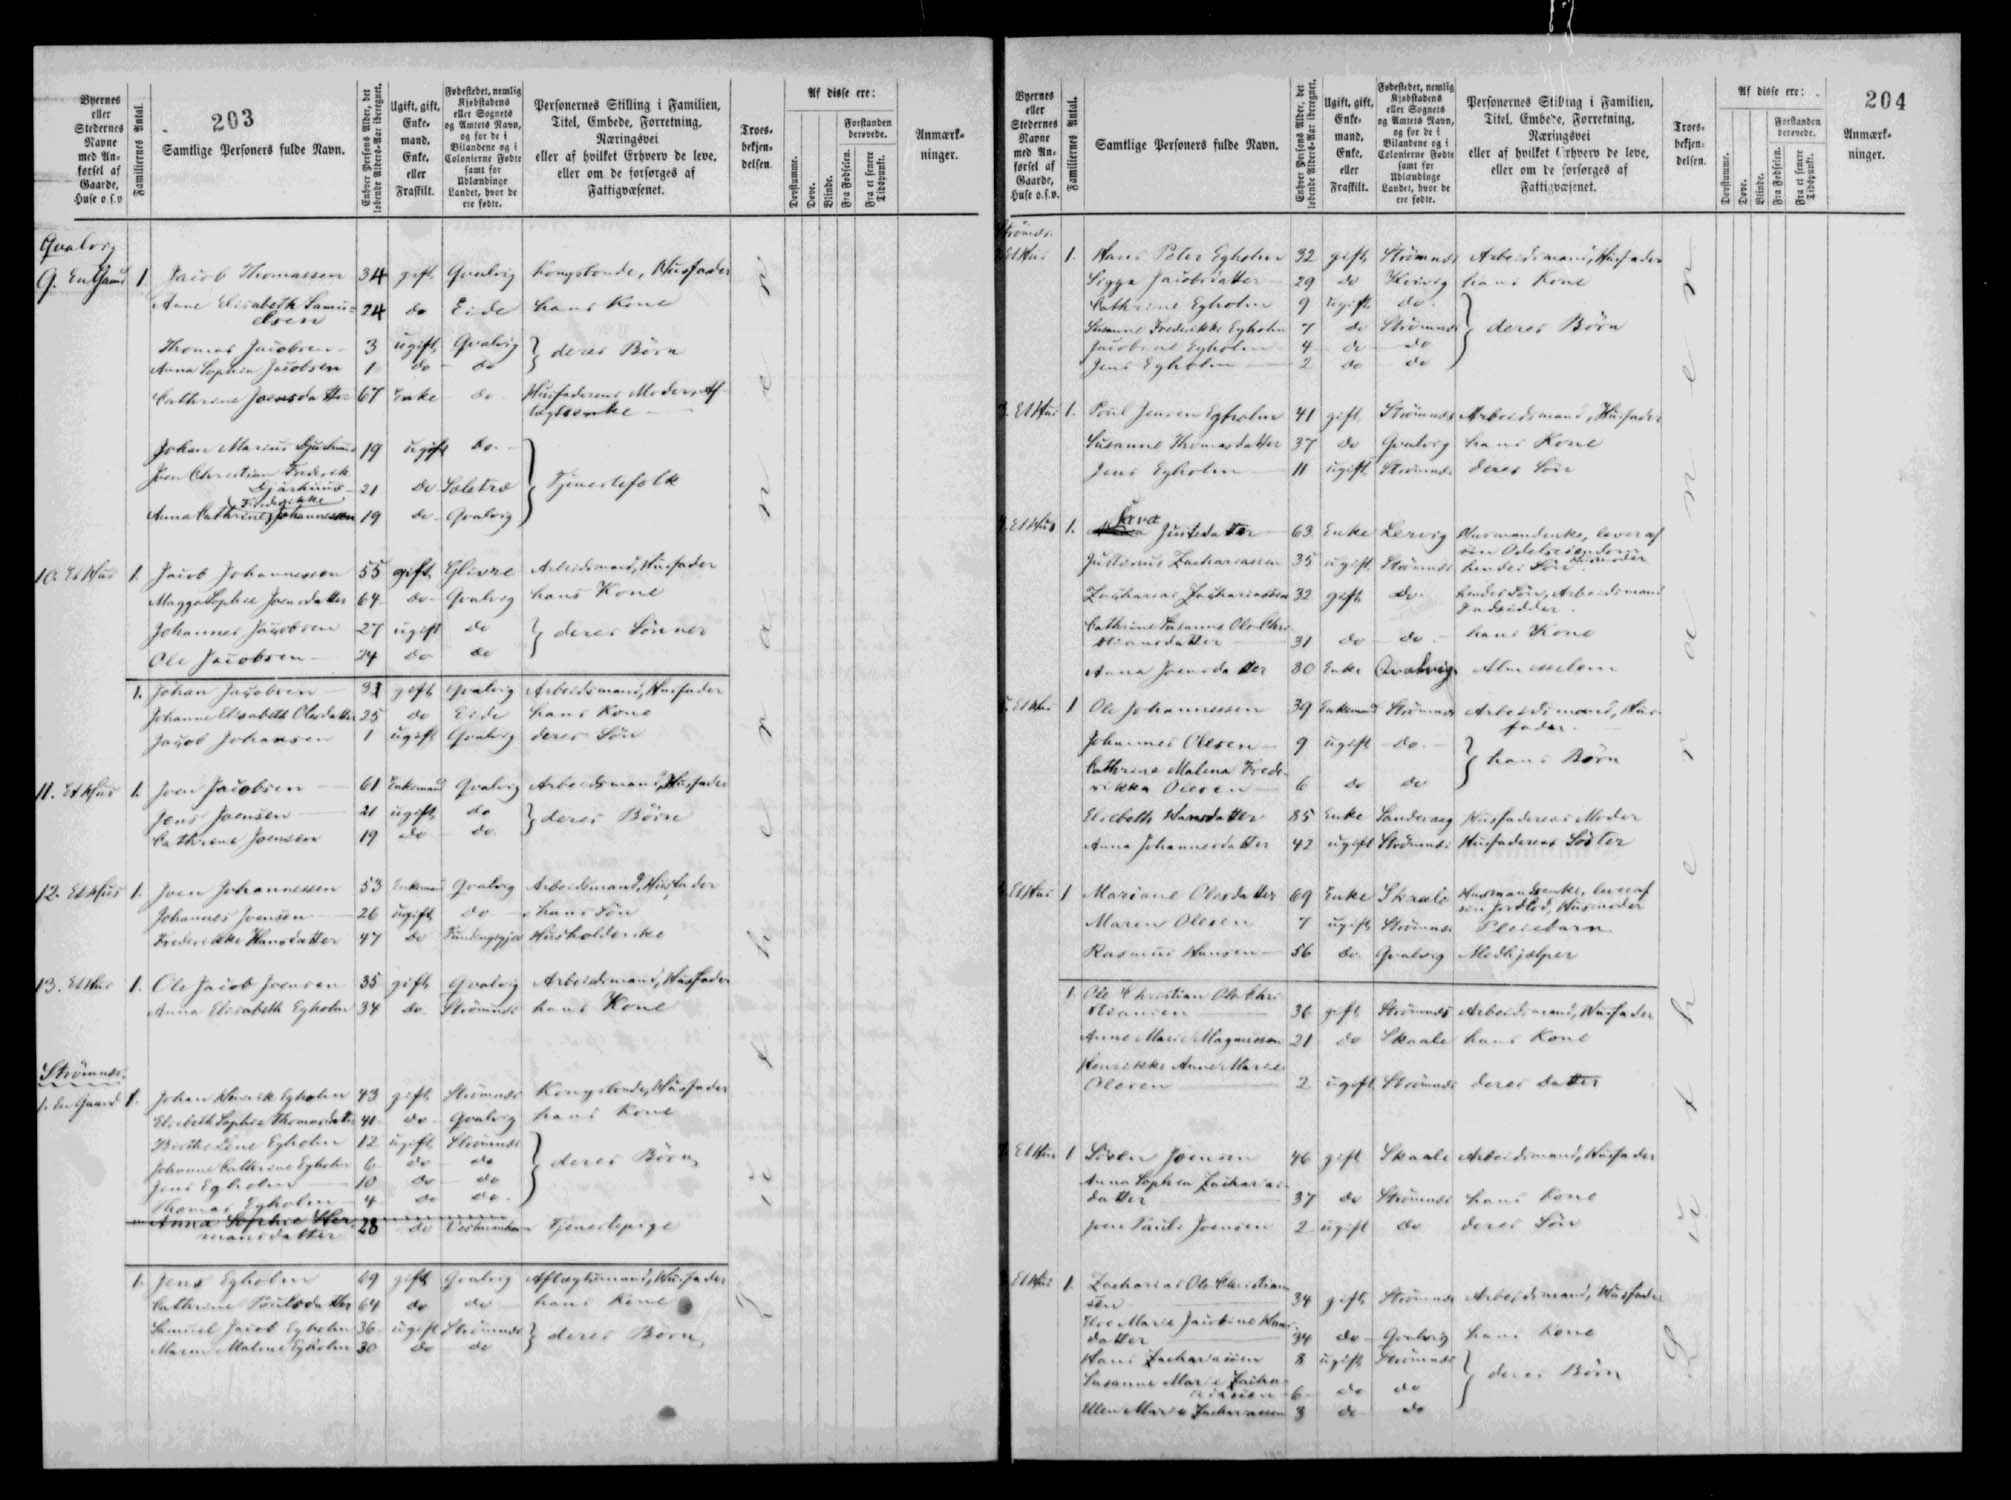 203
Byernes eller Stedernes Navne med Anførsel af Gaarde, Huse o.s.v
Familiernes Antal.
Samtlige Personers fulde Navn.
Enhver Persons Alder, det løbende Alders-Aar iberegnet.
Ugift, gift, Enkemand, Enke, eller Fraskilt.
Fødestedet, nemlig Kjøbstadens eller Sognets og Amtets Navn, og for de i Bilandene og i Colonierne Fødte samt for Udlændinge Landet, hvor de ere fødte.
Personernes Stilling i Familien, Titel, Embede, Forretning, Næringsvei eller af hvilket Erhverv de leve, eller om de forsørges af Fattigvæsenet.
Troesbekjendelsen.
Af disse ere:
Døvstumme.
Døve.
Blinde.
Forstanden berøvede.
Fra Fødselen.
Fra et senere Tidspunkt.
Anmærkninger.
Qvalvig
9. En Gaard 1 Jacob Thomassen 34 gift Qvalvig Kongsbonde, Husfader
Anne Elisabeth Samu=
elsen 24 do Eide hans Kone
Thomas Jacobsen 3 ugift Qvalvig } deres Børn
Anna Sophia Jacobsen 1 do do
Cathrine Joensdatter 67 Enke do Husfaderens Moder, Af-
lægtsenke
Johan Marius 19 ugift do
Joen Christian Frederik
Djurhuus 21 do Selatræ } Tjenestefolk
Frederikke
Anna Cathrine Johannesen 19 do Qvalvig
10. Et Hus 1. Jacob Johannessen 55 gift Glivre Arbeidsmand, Husfader
Magga Sophie Joensdatter 64 do Qvalvig hans Kone
Johannes Jacobsen 27 ugift do } deres Sønner
Ole Jacobsen 24 do do
1. Johan Jacobsen 31 gift Qvalvig Arbeidsmand, Husfader
Johanne Elisabeth Olesdatter 25 do Eide hans Kone
Jacob Johansen 1 ugift Qvalvig deres Søn
11. Et Hus 1. Joen Jacobsen 61 Enkemand Qvalvig Arbeidsmand, Husfader
Jens Joensen 21 ugift do } deres Børn
Cathrine Joensen 19 do do
12. Et Hus 1. Joen Johannessen 53 Enkemand Qvalvig Arbeidsmand, Husfader
Johannes Joensen 26 ugift do hans Søn
Frederikke Hansdatter 47 do Husholderske
13. Et Hus 1. Ole Jacob Joensen 35 gift Qvalvig Arbeidsmand, Husfader
Anna Elisabeth Egholm 34 do Strømnæs hans Kone
Strømnæs.
1. En Gaard 1. Johan Henrik Egholm 43 gift Strømnæs Kongsbonde, Husfader
Elsebeth Sophie Thomasdatter 41 do Qvalvig hans Kone
Birthe Lene Egholm 12 ugift Strømnæs } deres Børn
Johanne Cathrine Egholm 6 do do
Jens Egholm 10 do do
Thomas Egholm 4 do do
Anna Sophie Her-
mansdatter 28 do Vestmanhavn Tjenestepige
1. Jens Egholm 69 gift Qvalvig Aftægtsmand, Husfader
Cathrine Poulsdatter 64 do do hans Kone
Samuel Jacob Egholm 36 ugift Strømnæs } deres Børn
Maren Malene Egholm 30 do do
Lutheranere
204
Byernes eller Stedernes Navne med Anførsel af Gaarde, Huse o.s.v.
Familiernes Antal.
Samtlige Personers fulde Navn.
Enhver Persons Alder, det løbende Alders-Aar iberegnet.
Ugift, gift, Enkemand, Enke, eller Fraskilt.
Fødestedet, nemlig Kjøbstadens eller Sognets og Amtets Navn, og for de i Bilandene og i Colonierne Fødte samt for Udlændinge Landet, hvor de ere fødte.
Personernes Stilling i Familien, Titel, Embede, Forretning, Næringsvei eller af hvilket Erhverv de leve, eller om de forsørges af Fattigvæsenet.
Troesbekjendelsen.
Af disse ere:
Døvstumme.
Døve.
Blinde.
Forstanden berøvede.
Fra Fødselen.
Fra et senere Tidspunkt.
Anmærkninger.
Strømnæs
Et Hus 1. Hans Peter Egholm 32 gift Strømnæs Arbeidsmand, Husfader
Sigga Jacobsdatter 29 do Hvivig hans Kone
Cathrine Egholm 9 ugift do } deres Børn
Susanne Frederikke Egholm 7 do Strømnæs
Jacobine Egholm 4 do do
Jens Egholm 2 do do
3. Et Hus 1. Poul Jensen Egholm 41 gift Strømnæs Arbeidsmand, Husfader
Susanne Thomasdatter 37 do Qvalvig hans Kone
Jens Egholm 11 ugift Strømnæs deres Søn
4. Et Hus 1. Justsdatter 63 Enke Lervig Husmandsenke, lever af
sin Odelseiendom
Justinus Zachariassen 35 ugift Strømnæs hendes Søn
Zacharias Zachariassen 32 gift do hendes Søn, Arbeidsmand
Indsidder.
Cathrine Susanne Ole Chri-
stiansdatter 31 do do hans Kone
Anna Joensdatter 80 Enke Qvalvig Almisselem
5. Et Hus 1 Ole Johannessen 39 Enkemand Strømnæs Arbeidsmand, Hus-
fader.
Johannes Olesen 9 ugift do } hans Børn
Cathrine Malena Frede-
rikka Olesen 6 do do
Elsebeth Hansdatter 85 Enke Husfaderens Moder
Anna Johannesdatter 42 ugift Strømnæs Husfaderens Søster
Et Hus 1 Mariane Olesdatter 69 Enke Skaale Husmandsenke, lever af
sin Jordlod, Husmoder
Maren Olesen 7 ugift Strømnæs Pleiebarn
Rasmus Hansen 56 do Qvalvig Medhjælper
1. Ole Christian Ole Chri-
stiansen 36 gift Strømnæs Arbeidsmand, Husfader
Anne Marie Magnussen 21 do Skaale hans Kone
Henrikke Anne Marie
Olesen 2 ugift Strømnæs deres Datter
Et Hus 1 Søren Joensen 46 gift Skaale Arbeidsmand, Husfader
Anna Sophia Zacharias-
datter 37 do Strømnæs hans Kone
Joen Pauli Joensen 2 ugift do deres Søn
Et Hus 1. Zacharias Ole Christian-
sen 34 gift Strømnæs Arbeidsmand, Husfader
Else Marie Jacobine Hans-
datter 34 do Qvalvig hans Kone
Hans Zachariassen 8 ugift Strømnæs } deres Børn
Susanne Marie Zacha-
riassen 6 do do
Ellen Marie Zachariassen 3 do do
Lutheranere